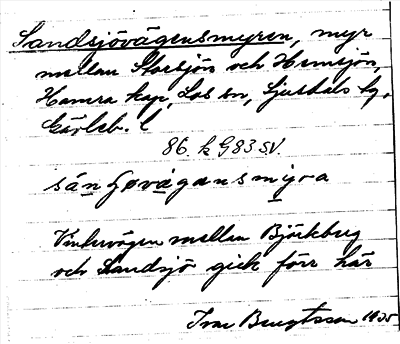 Sandsjövägensmyren, myr
mellan Storsjön och Hemsjön,
Hamra kap, Los sn, Ljusdals tg.
Gävleb. l
86. k G83 SV.
sánʃøvä̀gansmỳra
Vintervägen mellan Björkberg
och Sandsjö gick förr här
Ivar Bengtsson 1935